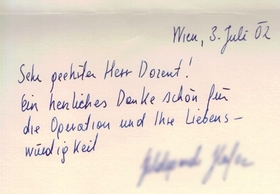 Wien, 3. Juli 02
Sehr geehrter Herr Dozent!
Ein herzliches Danke schön für
die Operation und Ihre Liebens-
würdigkeit